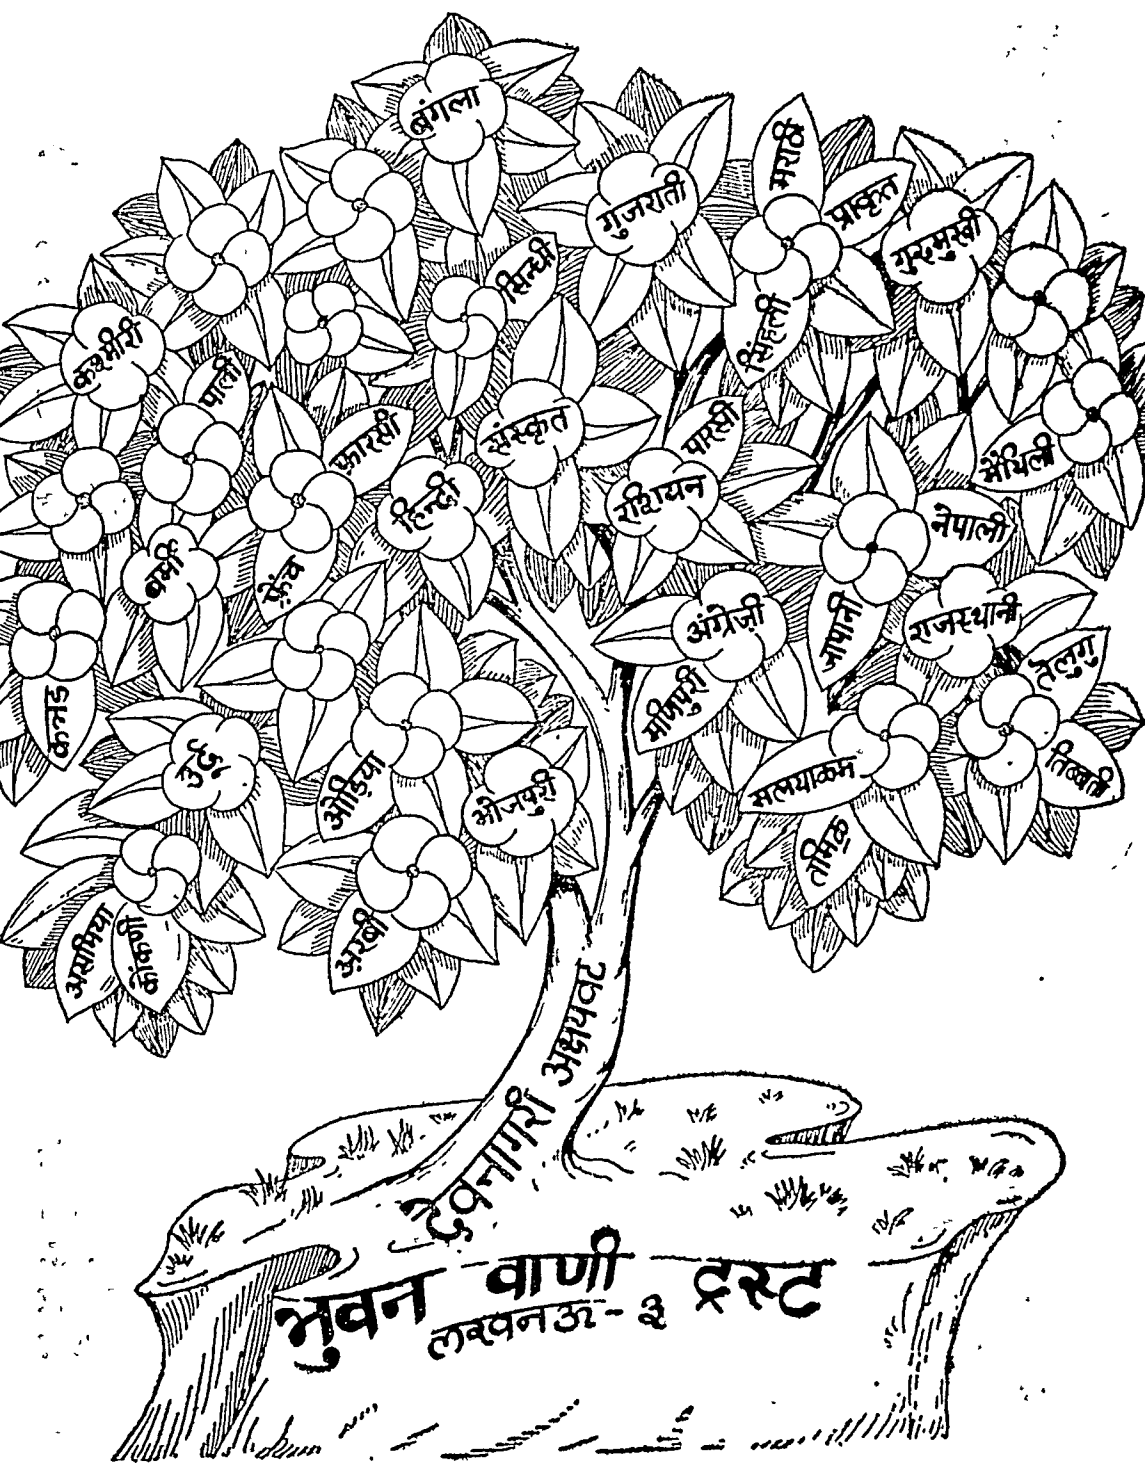 बंगला
मराठी
गुजराती
प्राकृत
गुरुमुखी
सिन्धी
सिंहली
कश्मीरी
पाली
फ़ारसी
संस्कृत
पारसी
मैथिली
हिन्दी
रशियन
नेपाली
बर्मी
फ़्रेंच
अंग्रेज़ी
जापानी
राजस्थानी
तेलुगु
कन्नड
मणिपुरी
उर्दू
ओड़िया
भोजपुरी
मलयाळम
तिब्बती
तमिऴ
असमिया
कोंकणी
अ़रबी
देवनागरी अक्षयवट
भुवन वाणी ट्रस्ट
लखनऊ - ३